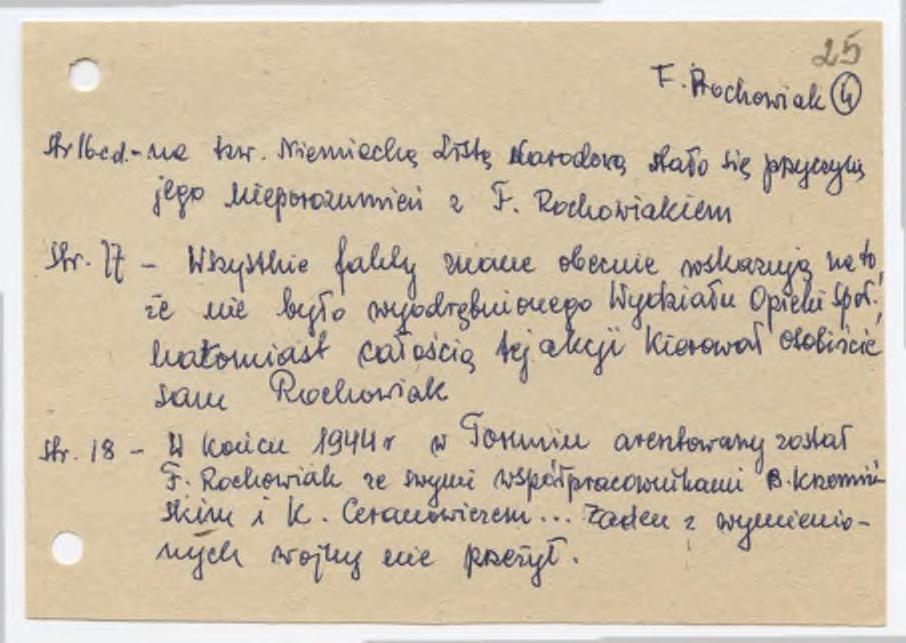 25
F. Rochowiak 4
str 16 cd. - na tzw. Niemiecką Listę Narodową stało się przyczyną
jego nieporozumień z F. Rochowiakiem
Str. 17 - Wszystkie fakty znane obecnie wskazują na to,
że nie było wyodrębnionego Wydziału Opieki Społ.,
natomiast całością tej akcji kierował osobiście
sam Rochowiak
str. 18 - W końcu 1944 r w Toruniu aresztowany został
F. Rochowiak ze swymi współpracownikami B. Krzemiń
skim i K. Ceranowiczem... Żaden z wymienio-
nych wojny nie przeżył.